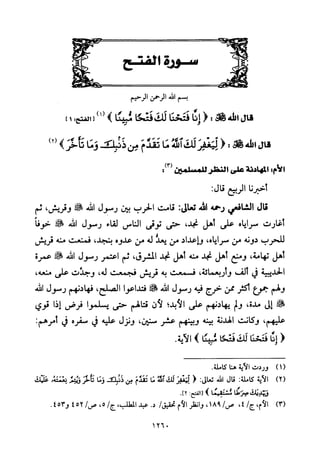 سورة الفتح
بسم الله الرحمن الرحيم
قال الله ﷻ: ﴿ إِنَّا فَتَحْنَا لَكَ فَتْحًا مُّبِينًا ﴾ (١) [الفتح: ١]
قال الله ﷻ: ﴿ لِّيَغْفِرَ لَكَ ٱللَّهُ مَا تَقَدَّمَ مِن ذَنۢبِكَ وَمَا تَأَخَّرَ ﴾ (٢)
الأم: المهادنة على النظر للمسلمين (٣):
أخبرنا الربيع قال:
قال الشافعي رحمه الله تعالى: قامت الحرب بين رسول الله ﷺ وقريش، ثم
أغارت سراياه على أهل نجد، حتى توقى الناس لقاء رسول الله ﷺ خوفاً
للحرب دونه من سراياه، وإعداد من يعدُّ له من عدوه بنجد، فمنعت منه قريش
أهل تهامة، ومنع أهل نجد منه أهل نجد المشرق، ثم اعتمر رسول الله ﷺ عمرة
الحديبية في ألف وأربعمائة، فسمعت به قريش فجمعت له، وجدَّت على منعه،
ولهم جموع أكثر ممن خرج فيه رسول الله ﷺ فتداعوا الصلح، فهادنهم رسول الله
ﷺ إلى مدة، ولم يهادنهم على الأبد؛ لأن قتالهم حتى يسلموا فرض إذا قوي
عليهم، وكانت الهدنة بينه وبينهم عشر سنين، ونزل عليه في سفره في أمرهم:
﴿ إِنَّا فَتَحْنَا لَكَ فَتْحًا مُّبِينًا ﴾ الآية.
(١) وردت الآية هنا كاملة.
(٢) الآية كاملة: قال الله تعالى: ﴿ لِّيَغْفِرَ لَكَ ٱللَّهُ مَا تَقَدَّمَ مِن ذَنۢبِكَ وَمَا تَأَخَّرَ وَيُتِمَّ نِعْمَتَهُۥ عَلَيْكَ
وَيَهْدِيَكَ صِرَٰطًا مُّسْتَقِيمًا ﴾ [الفتح: ٢].
(٣) الأم، ج/٤، ص/١٨٩، وانظر الأم تحقيق/ د. عبد المطلب، ج/٥، ص/٤٥٢ و٤٥٣.
١٢٦٠